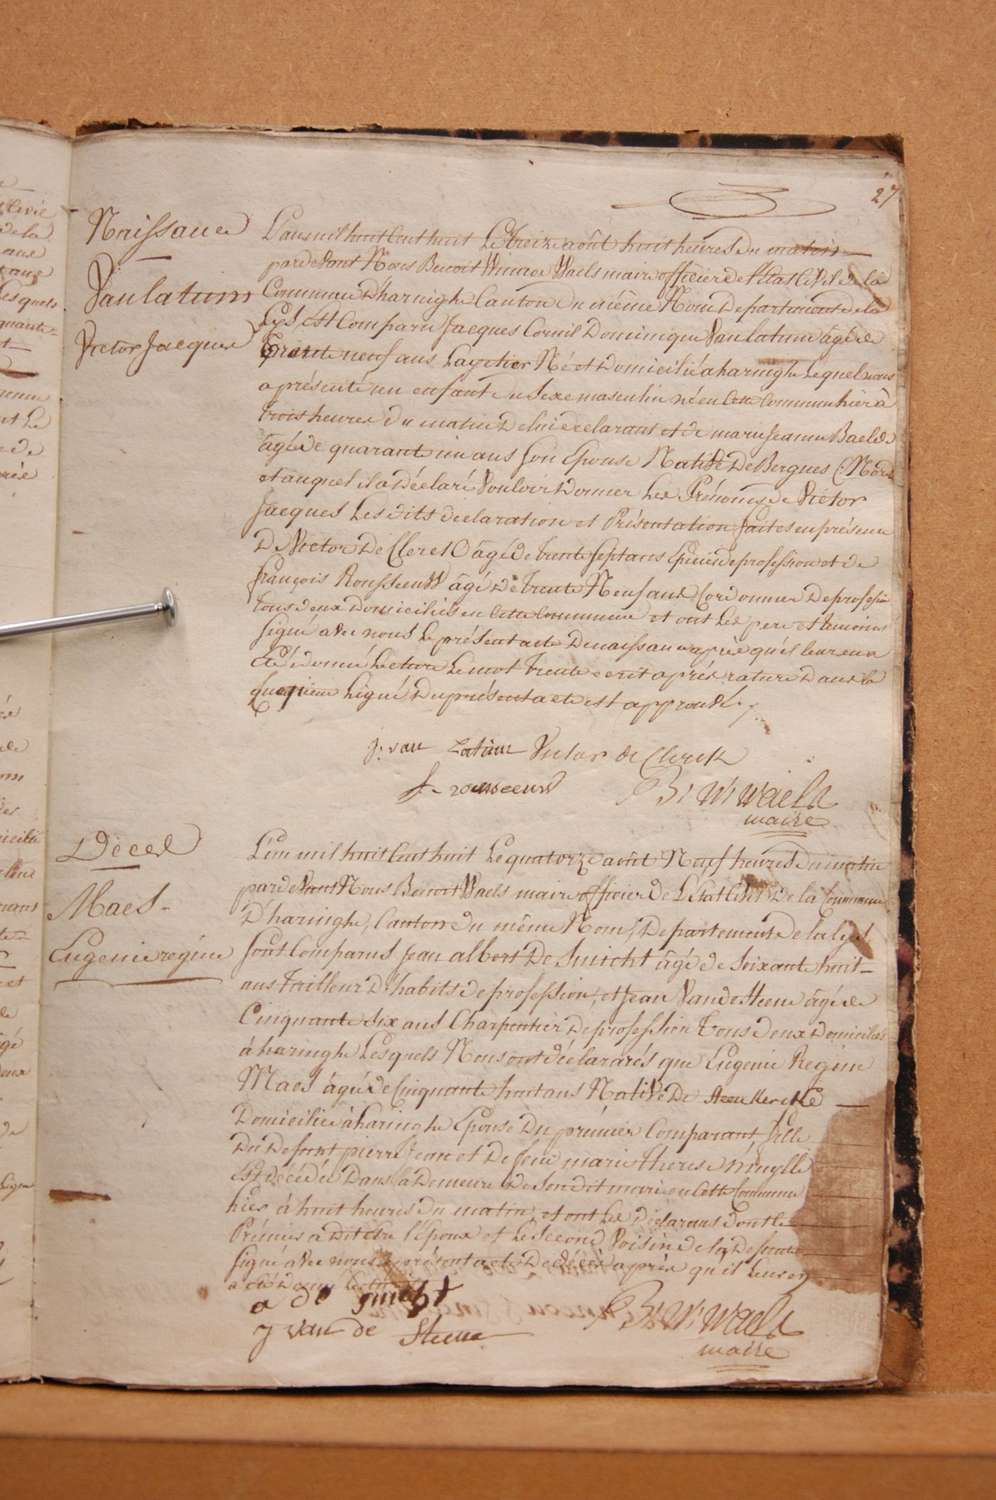 27
Naissance
Vanlatum
Victor Jacques
L'an mil huit Cent huit Le treize août huit heures du matin
pardevant Nous Benoit Winoc Waels maire officier de l'Etat Civil de la
Commune D'haringhe Canton du même Nom Departement de la
Lys Est Comparu Jacques Cornil Dominique Vanlatum âgé de
trente neuf ans Né et Domicilié à haringhe Lequel nous
a présenté un enfant du Sexe masculin né en Cette Commune hier à
trois heures du matin de lui declarant et de marie Jeanne Baelde
âgée de quarante un ans Son Epouse Native De Bergues (Nord
et auquel il a Déclaré Vouloir Donner Les Prénoms de Victor
Jacques Les dits declaration et Présentation faites en présence
De Victor De Clerck âgé de trente Sept ans de profession et de
François Rousseeuw âgé De trente Neuf ans Cordonnier De profession
tous deux Domiciliés en Cette Commune et ont Les pere et temoins
Signé avec nous Le présent acte De naissance après qu'il leur en a
été donné Lecture Le mot trente ecrit après rature Dans la
Cinquieme Ligne Du présent acte est approuvé
j. van Latum Victor de Clerck
f. rousseeuw B: W: Waels
maire
Décès
Maes
Eugenie regine
L'an mil huit Cent huit Le quatorze août Neuf heures du matin
pardevant Nous Benoit Waels maire officier de L'état Civil De la Commune
D'haringhe, Canton du même Nom, Departement de la Lys
Sont Comparus Jean albert De Smicht âgé de Soixante huit
ans tailleur D'habits de profession, et Jean Vande Steene âgé de
Cinquante Six ans Charpentier De profession tous deux Domiciliés
à haringhe Lesquels Nous ont déclararés que Eugenie Regine
Maes âgée de Cinquante huit ans Native De Steenkercke
Domiciliée à haringhe Epouse Du prémier Comparant fille
Du Defunt pierre Jean et De feue marie therese
Est décédée Dans la Demeure de Son dit mari en Cette Commune
hier à huit heures du matin, et ont Les Déclarans dont le
Prémier a dit être l'Epoux et Le Second Voisin de la Defunte
Signé avec nous présent acte De décès après qu'il leur en
a été Donné Lecture
a de Smicht B: W: Waels
J van de Steene maire